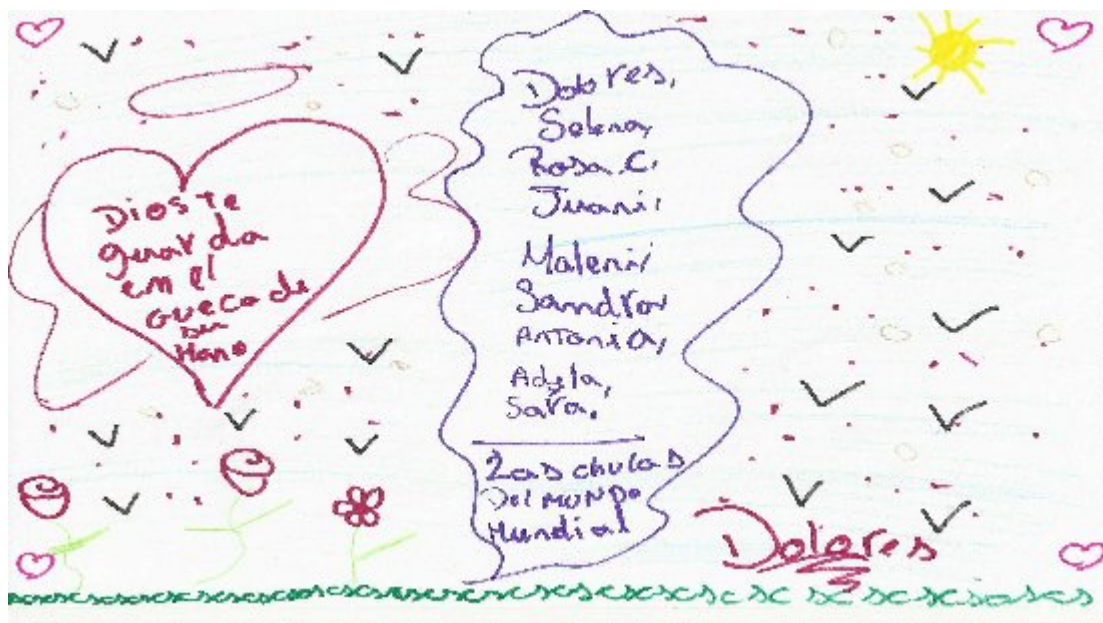 Dios Te
guarda
en el
Gueco de
su
Mano
Dolores,
Selena,
Rosa C.
Juani,
Maleni,
Sandra,
Antonia,
Adela,
Sara.
Las chulas
Del MUNDO
Mundial
Dolores